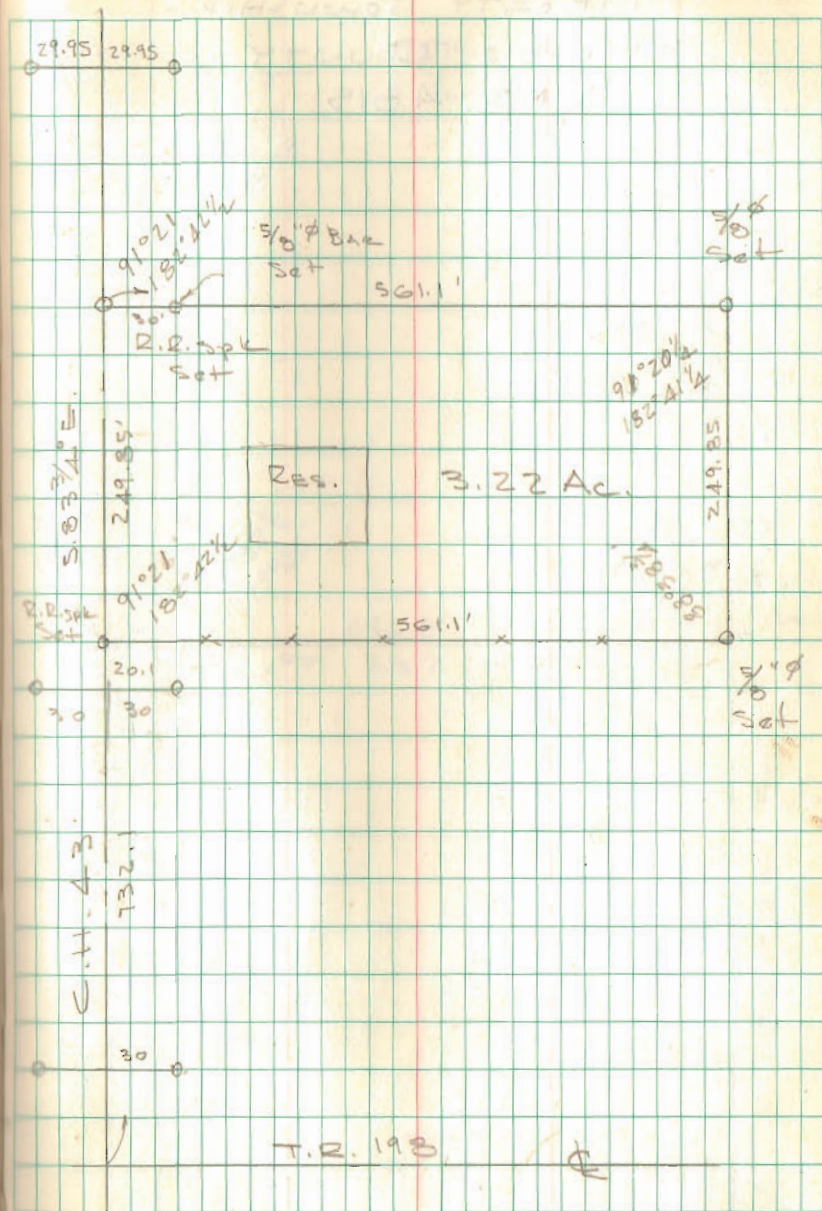 29.95 29.95
91°21
182°42½
5/8"⌀ Bar
Set
5/8⌀
Set
561.1'
30.
R.R. Spk
Set
91°20¼
182°41¼
S.83¾°E.
249.85'
Res.
3.22 Ac.
249.85
91°21
182°42½
R.R. Spk
Set
561.1'
88°38¾
20.1
30 30
5/8"⌀
Set
C.H. 43
732.1
30
T.R. 198 ℄